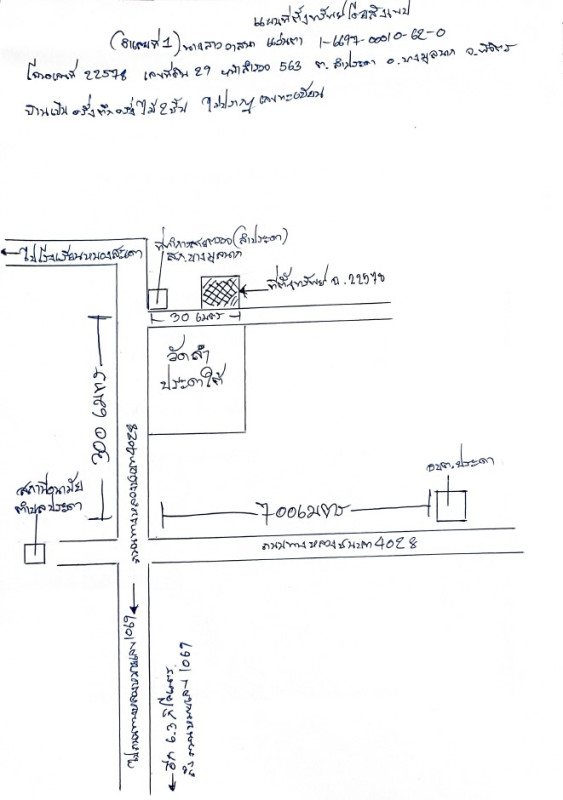 แผนที่ตั้งทรัพย์โดยสังเขป
(จำเลยที่ 1) นางสาว 1-6697-00010-62-0
โฉนดเลขที่ 22578 เลขที่ดิน 29 หน้าสำรวจ 563 ต.ลำประดา อ.บางมูลนาก จ.พิจิตร
บ้านเป็นครึ่งตึกครึ่งไม้ 2 ชั้น ไม่ปรากฏเลขทะเบียน
ไปโรงเรียนหนองสะเดา
ที่ทำการ (ลำประดา)
สภ.บางมูลนาก
ที่ตั้งทรัพย์ ฉ.22578
30 เมตร
วัดลำ
ประดาใต้
300 เมตร
ถนนทางหลวงชนบท 4028
สถานีอนามัย
ตำบลประดา
อบต.ประดา
700 เมตร
ถนนทางหลวงชนบท 4028
ไปถนนทางหลวงหมายเลข 1069
อีก 6.3 กิโลเมตร
ถึงถนนหมายเลข 1069